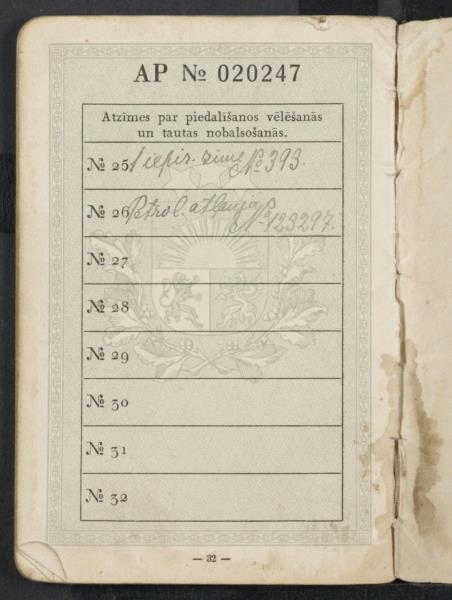 AP № 020247
Atzīmes par piedalīšanos vēlēšanās
un tautas nobalsošanās.
№ 25 Iepir. zīme № 393.
№ 26 Petrol. atļauja
№ 123297.
№ 27
№ 28
№ 29
№ 30
№ 31
№ 32
— 32 —